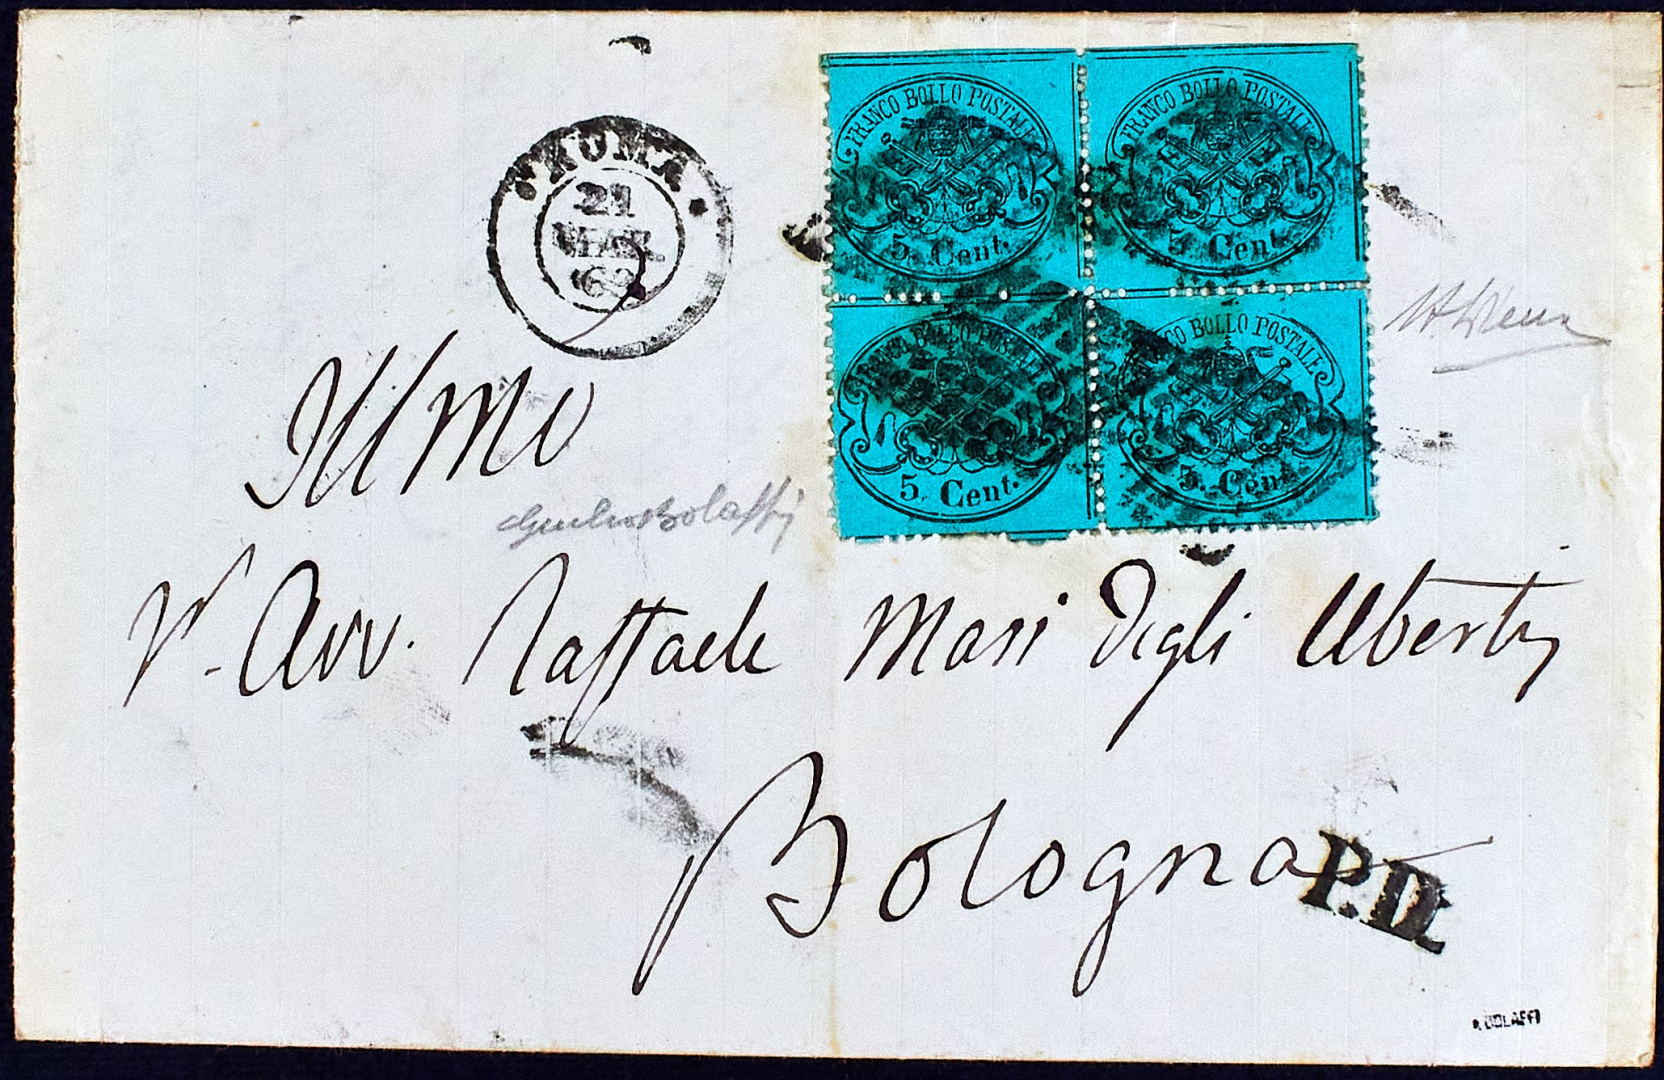 ROMA
21
MAR
69
FRANCO BOLLO POSTALE
5. Cent.
FRANCO BOLLO POSTALE
5. Cent.
FRANCO BOLLO POSTALE
5. Cent.
FRANCO BOLLO POSTALE
5. Cent.
Illmo
Giulio Bolaffi
Avv. Raffaele Masi Degli Uberti
Bologna
P.D.
BOLAFFI